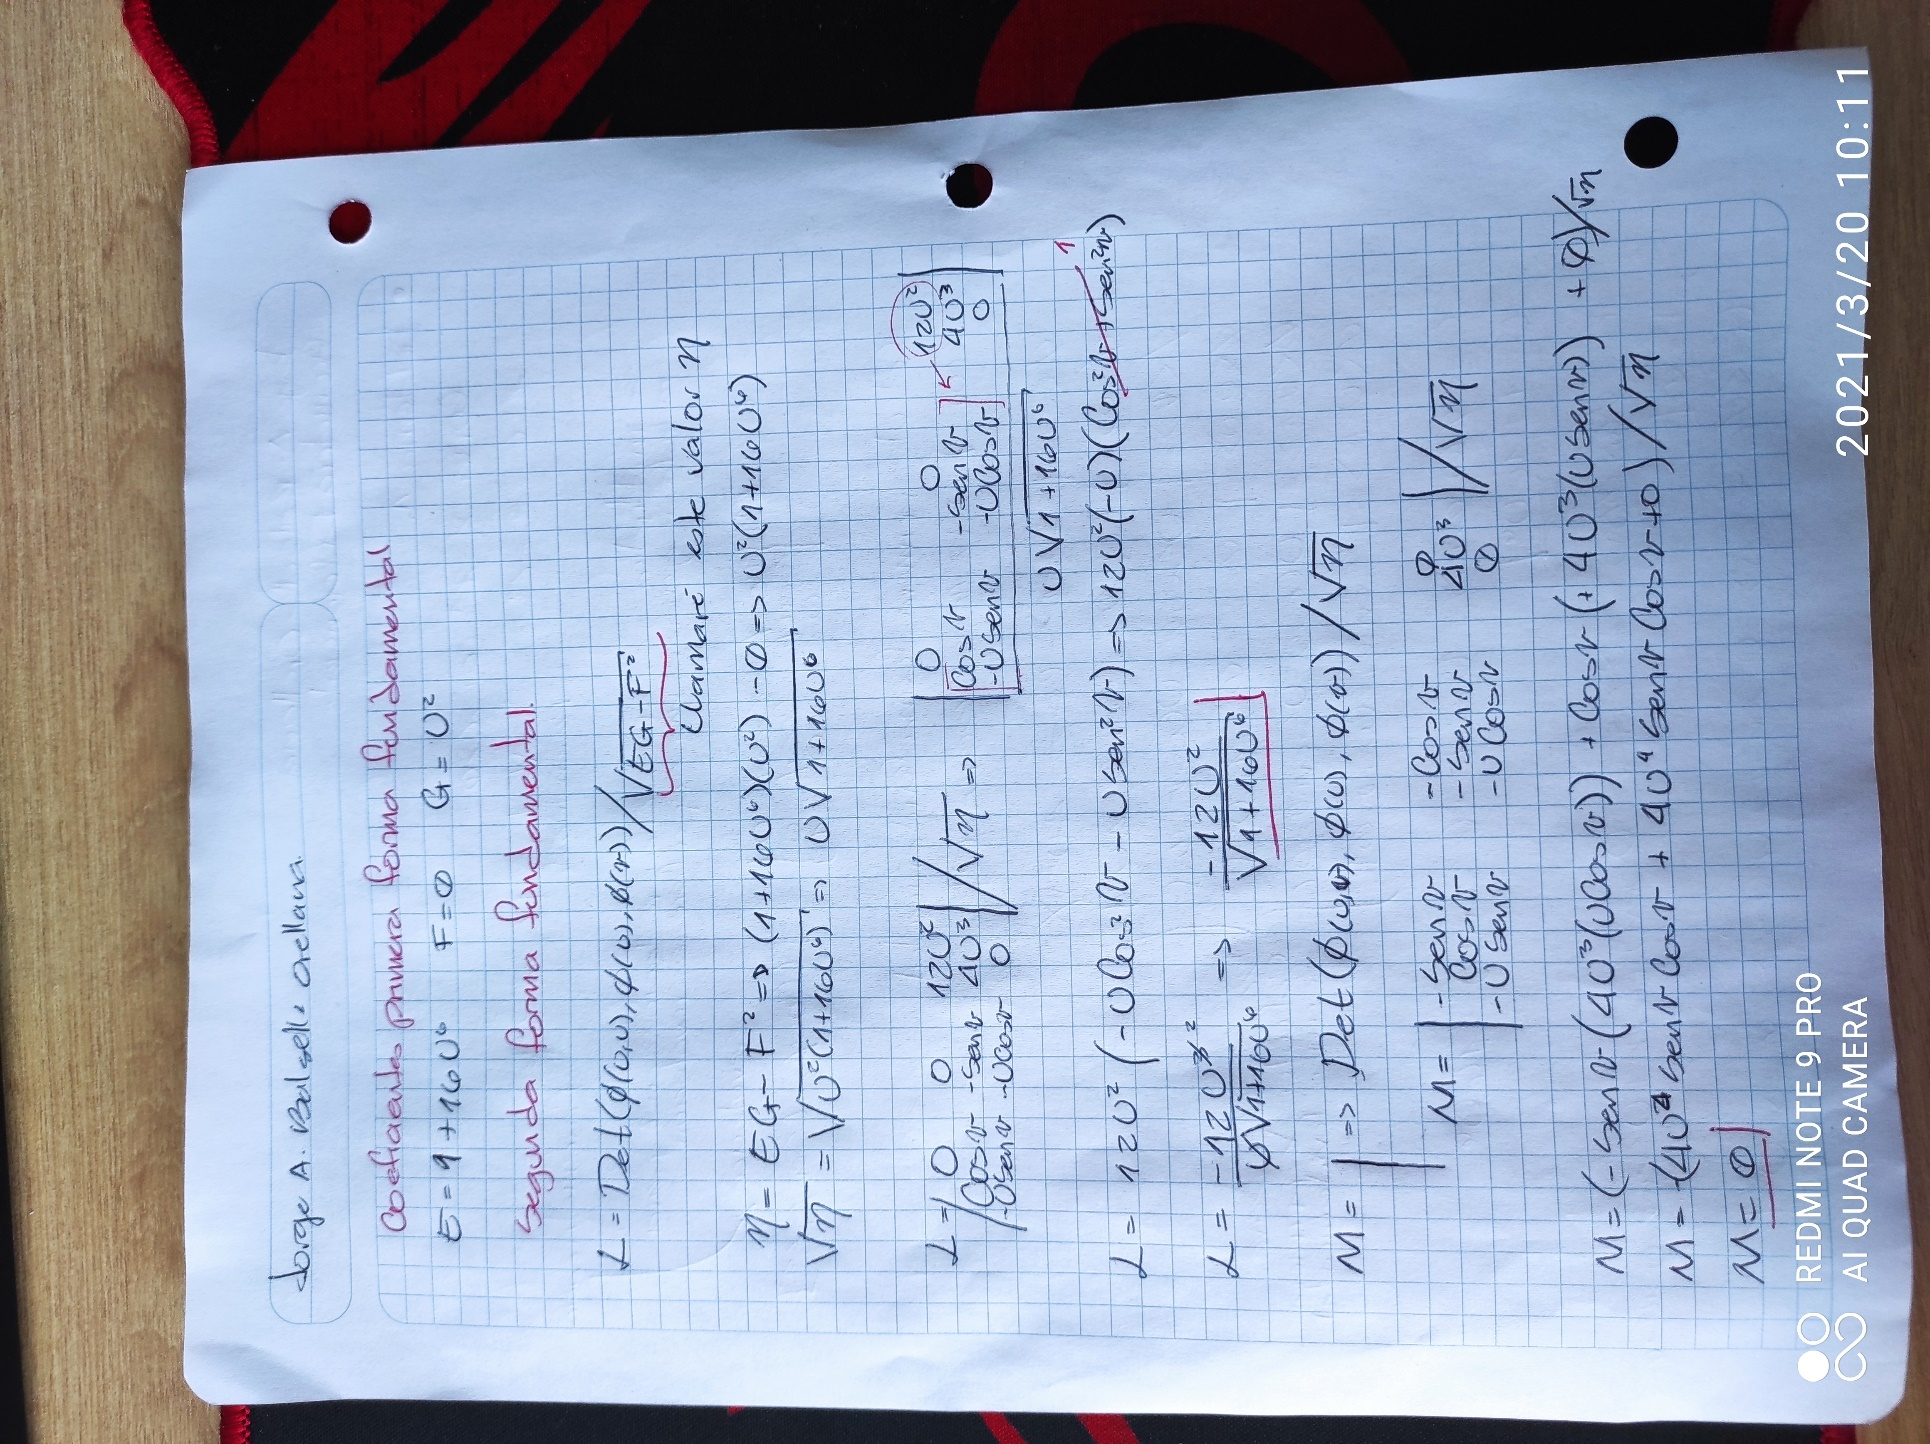 Jorge A. Balsells Orellana.
Coeficientes primera forma fundamental
E = 1 + 16U⁶   F = 0   G = U²
Segunda forma fundamental.
L = Det(ϕ(U,U), ϕ(U), ϕ(v)) / √EG-F²
Llamaré este valor η
η = EG - F² => (1+16U⁶)(U²) - 0 => U²(1+16U⁶)
√η = √U²(1+16U⁶) => U√1+16U⁶
L = | 0   0   12U² | / √η => | 0   0   12U² |
| Cosv   -Senv   4U³ |   | Cosv   -Senv   4U³ |
| -USenv   -UCosv   0 |   | -USenv   -UCosv   0 |
U√1+16U⁶
L = 12U² (-UCos²v - USen²v) => 12U²(-U)(Cos²v + Sen²v) 1
L = -12U³ ² / U√1+16U⁶ => -12U² / √1+16U⁶
M = | => Det(ϕ(U,v), ϕ(U), ϕ(v)) / √η
M = | -Senv   -Cosv   0 | / √η
| Cosv   -Senv   4U³ |
| -USenv   -UCosv   0 |
M = (-Senv (4U³(UCosv)) + Cosv (+4U³(USenv)) + 0)/√η
M = -(4U⁴ Senv Cosv + 4U⁴ Senv Cosv +0) / √η
M = 0
REDMI NOTE 9 PRO
AI QUAD CAMERA
2021/3/20 10:11